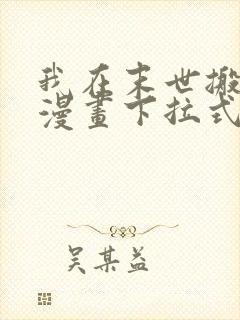 我在末世搬
漫畫下拉式
吴某益